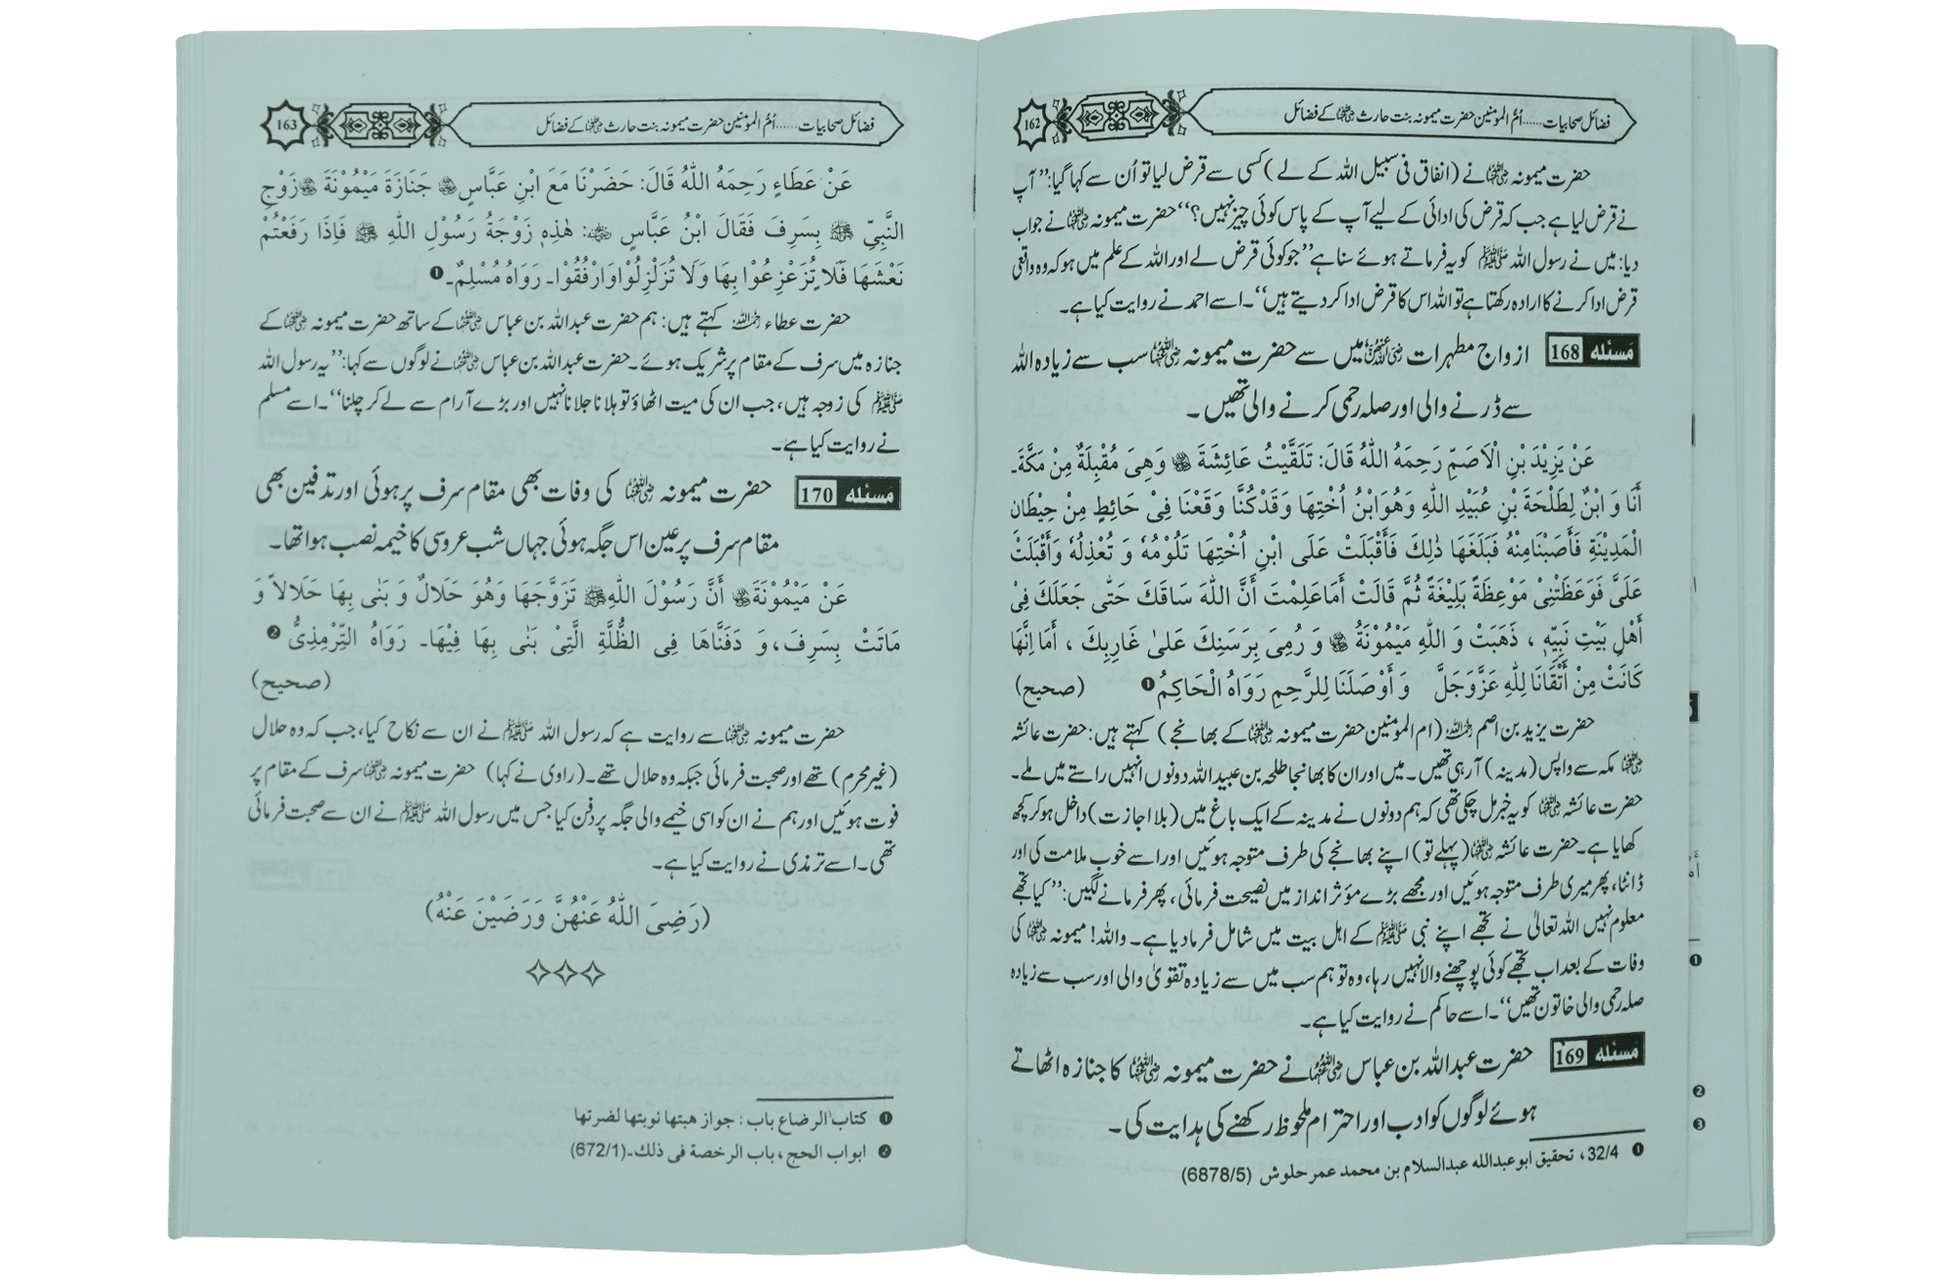 162
فضائل صحابیات......اُمُّ المؤمنین حضرت میمونہ بنت حارث ؓ کے فضائل
حضرت میمونہ ؓ نے (انفاق فی سبیل اللہ کے لے) کسی سے قرض لیا تو اُن سے کہا گیا: ’’آپ
نے قرض لیا ہے جب کہ قرض کی ادائی کے لیے آپ کے پاس کوئی چیز نہیں؟‘‘ حضرت میمونہ ؓ نے جواب
دیا: میں نے رسول اللہ ﷺ کو یہ فرماتے ہوئے سنا ہے ’’جو کوئی قرض لے اور اللہ کے علم میں ہو کہ وہ واقعی
قرض ادا کرنے کا ارادہ رکھتا ہے تو اللہ اس کا قرض ادا کر دیتے ہیں‘‘۔ اسے احمد نے روایت کیا ہے۔
مَسئلہ 168 ازواج مطہرات ؓ میں سے حضرت میمونہ ؓ سب سے زیادہ اللہ
سے ڈرنے والی اور صلہ رحمی کرنے والی تھیں۔
عَنْ یَزِیْدَ بْنِ الْاَصَمِّ رَحِمَهُ اللّٰهُ قَالَ: تَلَقَّيْتُ عَائِشَةَ ؓ وَهِيَ مُقْبِلَةٌ مِنْ مَكَّةَ۔
أَنَا وَ ابْنٌ لِطَلْحَةَ بْنِ عُبَيْدِ اللّٰهِ وَهُوَ ابْنُ اُخْتِهَا وَقَدْ كُنَّا وَقَعْنَا فِيْ حَائِطٍ مِنْ حِيْطَانِ
الْمَدِيْنَةِ فَأَصَبْنَا مِنْهُ فَبَلَغَهَا ذٰلِكَ فَأَقْبَلَتْ عَلَى ابْنِ اُخْتِهَا تَلُوْمُهُ وَ تُعْذِلُهُ وَأَقْبَلَتْ
عَلَيَّ فَوَعَظَتْنِيْ مَوْعِظَةً بَلِيْغَةً ثُمَّ قَالَتْ أَمَا عَلِمْتَ أَنَّ اللّٰهَ سَاقَكَ حَتّٰى جَعَلَكَ فِيْ
أَهْلِ بَيْتِ نَبِيِّهٖ ، ذَهَبَتْ وَ اللّٰهِ مَيْمُوْنَةُ ؓ وَ رُمِيَ بِرَسَنِكَ عَلىٰ غَارِبِكَ ، أَمَا اِنَّهَا
كَانَتْ مِنْ أَتْقَانَا لِلّٰهِ عَزَّوَجَلَّ وَ أَوْصَلَنَا لِلرَّحِمِ رَوَاهُ الْحَاكِمُ ❶ (صحیح)
حضرت یزید بن اصم ؒ (ام المومنین حضرت میمونہ ؓ کے بھانجے) کہتے ہیں: حضرت عائشہ
ؓ مکہ سے واپس (مدینہ) آ رہی تھیں۔ میں اور ان کا بھانجا طلحہ بن عبید اللہ دونوں انہیں راستے میں ملے۔
حضرت عائشہ ؓ کو یہ خبر مل چکی تھی کہ ہم دونوں نے مدینہ کے ایک باغ میں (بلا اجازت) داخل ہو کر کچھ
کھایا ہے۔ حضرت عائشہ ؓ (پہلے تو) اپنے بھانجے کی طرف متوجہ ہوئیں اور اسے خوب ملامت کی اور
ڈانٹا، پھر میری طرف متوجہ ہوئیں اور مجھے بڑے مؤثر انداز میں نصیحت فرمائی، پھر فرمانے لگیں: ’’کیا تجھے
معلوم نہیں اللہ تعالیٰ نے تجھے اپنے نبی ﷺ کے اہل بیت میں شامل فرما دیا ہے۔ واللہ! میمونہ ؓ کی
وفات کے بعد اب تجھے کوئی پوچھنے والا نہیں رہا، وہ تو ہم سب میں سے زیادہ تقویٰ والی اور سب سے زیادہ
صلہ رحمی والی خاتون تھیں‘‘۔ اسے حاکم نے روایت کیا ہے۔
مَسئلہ 169 حضرت عبداللہ بن عباس ؓ نے حضرت میمونہ ؓ کا جنازہ اٹھاتے
ہوئے لوگوں کو ادب اور احترام ملحوظ رکھنے کی ہدایت کی۔
❶ 32/4، تحقیق ابو عبدالله عبدالسلام بن محمد عمر حلوش (6878/5)
163
فضائل صحابیات......اُمُّ المؤمنین حضرت میمونہ بنت حارث ؓ کے فضائل
عَنْ عَطَاءٍ رَحِمَهُ اللّٰهُ قَالَ: حَضَرْنَا مَعَ ابْنِ عَبَّاسٍ ؓ جَنَازَةَ مَيْمُوْنَةَ ؓ زَوْجِ
النَّبِيِّ ﷺ بِسَرِفَ فَقَالَ ابْنُ عَبَّاسٍ ؓ: هٰذِهٖ زَوْجَةُ رَسُوْلِ اللّٰهِ ﷺ فَاِذَا رَفَعْتُمْ
نَعْشَهَا فَلَا تُزَعْزِعُوْا بِهَا وَلَا تُزَلْزِلُوْا وَارْفُقُوْا۔ رَوَاهُ مُسْلِمٌ۔ ❶
حضرت عطاء ؒ کہتے ہیں: ہم حضرت عبداللہ بن عباس ؓ کے ساتھ حضرت میمونہ ؓ کے
جنازہ میں سرف کے مقام پر شریک ہوئے۔ حضرت عبداللہ بن عباس ؓ نے لوگوں سے کہا: ’’یہ رسول اللہ
ﷺ کی زوجہ ہیں، جب ان کی میت اٹھاؤ تو ہلانا جلانا نہیں اور بڑے آرام سے لے کر چلنا‘‘۔ اسے مسلم
نے روایت کیا ہے۔
مَسئلہ 170 حضرت میمونہ ؓ کی وفات بھی مقام سرف پر ہوئی اور تدفین بھی
مقام سرف پر عین اس جگہ ہوئی جہاں شب عروسی کا خیمہ نصب ہوا تھا۔
عَنْ مَيْمُوْنَةَ ؓ أَنَّ رَسُوْلَ اللّٰهِ ﷺ تَزَوَّجَهَا وَهُوَ حَلَالٌ وَ بَنٰى بِهَا حَلَالاً وَ
مَاتَتْ بِسَرِفَ، وَ دَفَنَّاهَا فِي الظُّلَّةِ الَّتِيْ بَنٰى بِهَا فِيْهَا۔ رَوَاهُ التِّرْمِذِيُّ ❷
(صحیح)
حضرت میمونہ ؓ سے روایت ہے کہ رسول اللہ ﷺ نے ان سے نکاح کیا، جب کہ وہ حلال
(غیر محرم) تھے اور صحبت فرمائی جبکہ وہ حلال تھے۔ (راوی نے کہا) حضرت میمونہ ؓ سرف کے مقام پر
فوت ہوئیں اور ہم نے ان کو اسی خیمے والی جگہ پر دفن کیا جس میں رسول اللہ ﷺ نے ان سے صحبت فرمائی
تھی۔ اسے ترمذی نے روایت کیا ہے۔
(رَضِيَ اللّٰهُ عَنْهُنَّ وَرَضَيْنَ عَنْهُ)
❶ کتاب الرضاع باب : جواز هبتها نوبتها لضرتها
❷ ابواب الحج ، باب الرخصة فی ذلك۔(672/1)